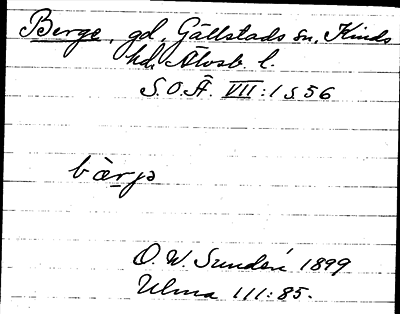 Berge, gd, Gällstads sn, Kinds
hd, Älvsb. l.
S.O.Ä. VII:1 s 56
bærjə
O. W. Sundén 1899
Ulma 111:85.